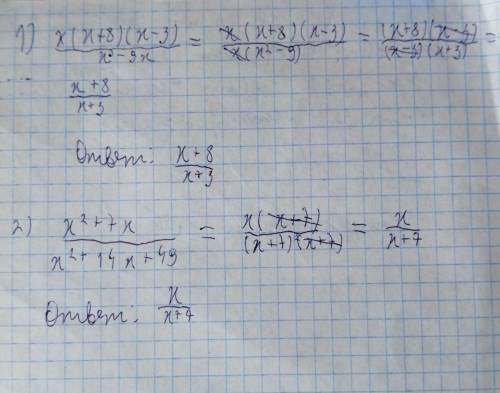 1) x(x+8)(x-3)/x²-9x = x(x+8)(x-3)/x(x²-9) = (x+8)(x-3)/(x-3)(x+3) =
x+8/x+3
Ответ: x+8/x+3
2) x²+7x/x²+14x+49 = x(x+7)/(x+7)(x+7) = x/x+7
Ответ: x/x+7